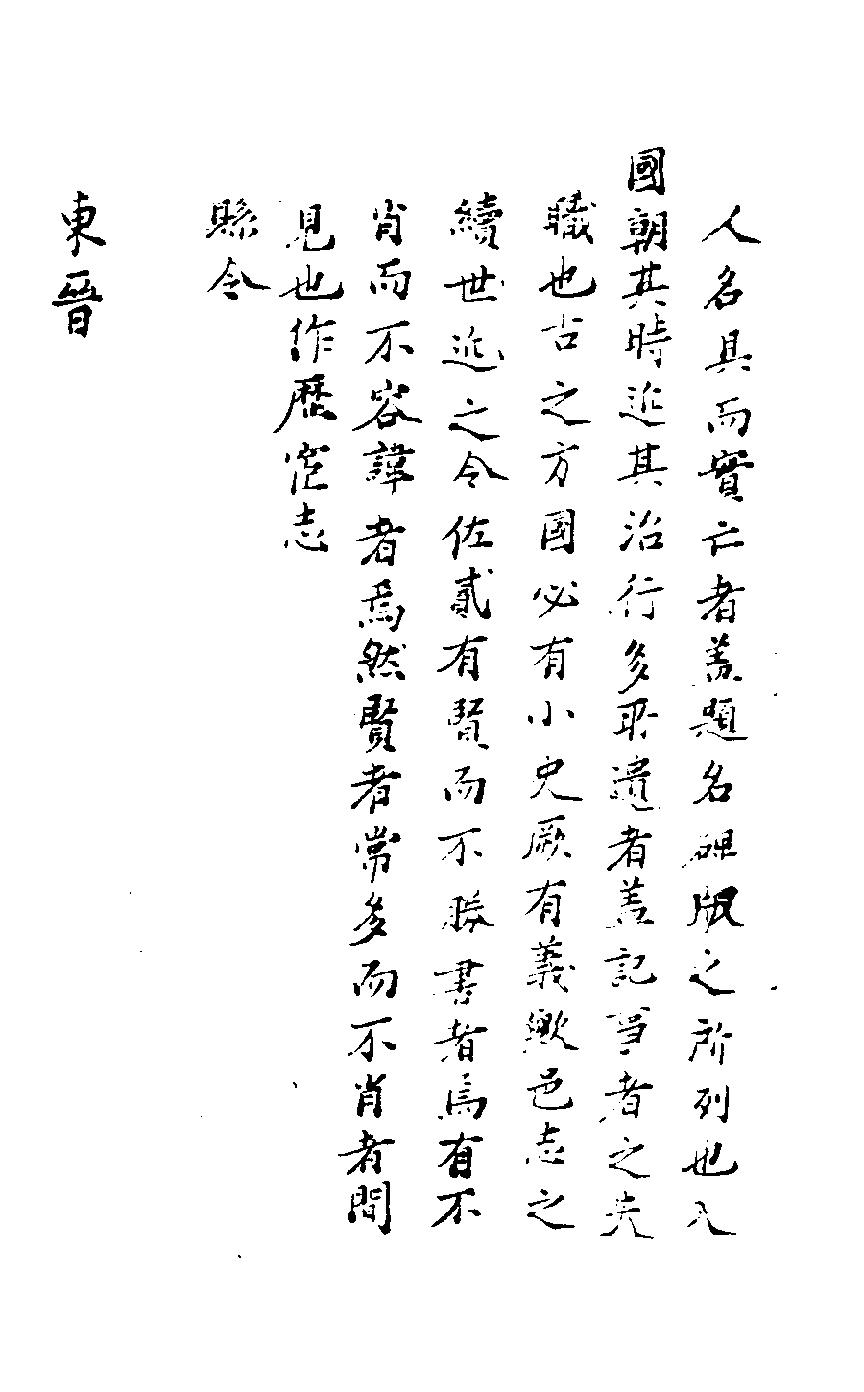 人名具而實亡者蓋題名碑版之所列也入
國朝其時近其治行多耶遺者蓋記事者之失
職也古之方國必有小史厥有義歟邑志之
續世近之令佐貳有賢而不勝書者焉有不
肖而不容諱者焉然賢者常多而不肖者間
見也作歷官志
縣令
東晉